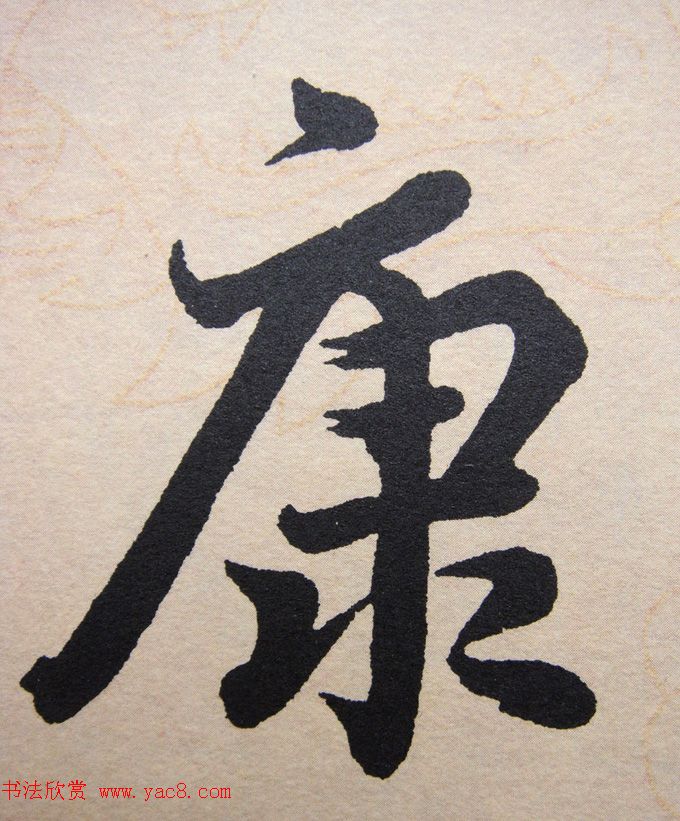 康
书法欣赏 www.yac8.com